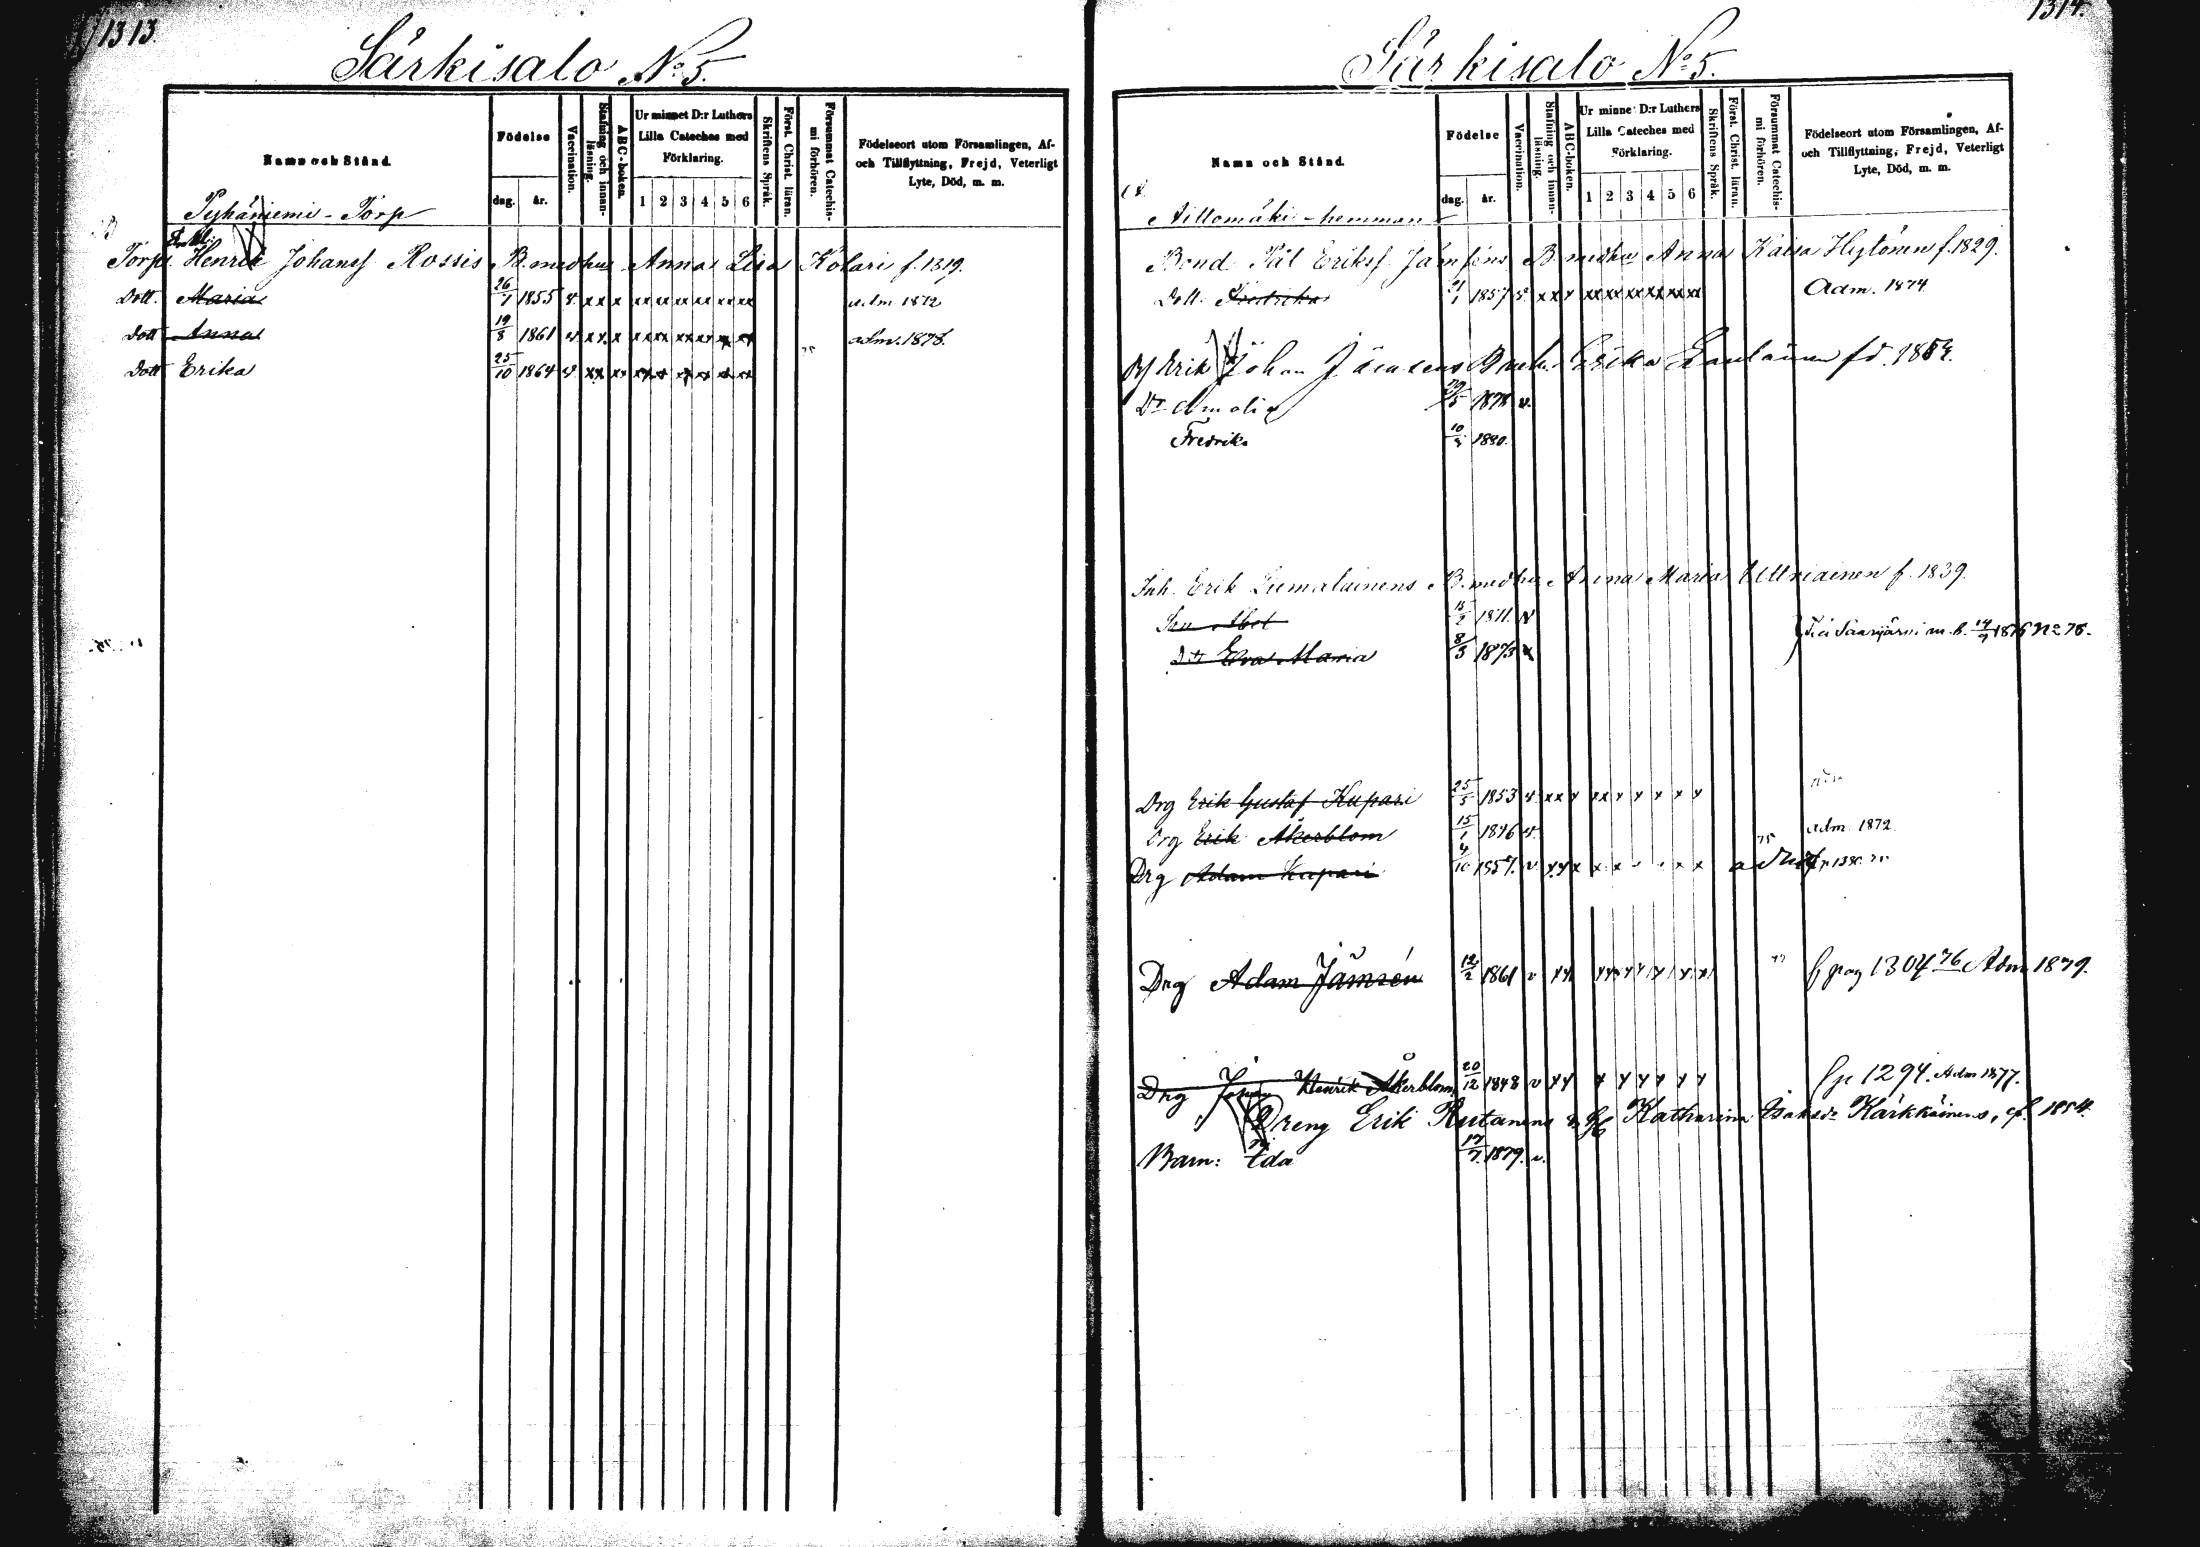 1313.
Särkisalo No 5.
Namn och Stånd.
Födelse
dag. år.
Vaccination.
Stafning och innan-läsning.
ABC-boken.
Ur minnet D:r Luthers Lilla Cateches med Förklaring.
1 2 3 4 5 6
Skriftens Språk.
Först. Christ. läran.
Försummat Catechis-mi förhören.
Födelseort utom Församlingen, Af- och Tillflyttning, Frejd, Veterligt Lyte, Död, m. m.
Pyhäniemi - Torp
Torp. Henrik Johanss Rossis B. med hu Anna Lisa Kolari f. 1819.
Dott. Maria 26/7 1855 v. xx x xx xx xx xx xx xx adm 1872
Dott Anna 19/8 1861 v xx x xx xx xx xx xx xx adm. 1878.
Dott Erika 25/10 1864 v xx xx xx xx xx xx xx 75
1314.
Särkisalo No 5.
Namn och Stånd.
Födelse
dag. år.
Vaccination.
Stafning och innan-läsning.
ABC-boken.
Ur minnet D:r Luthers Lilla Cateches med Förklaring.
1 2 3 4 5 6
Skriftens Språk.
Först. Christ. läran.
Försummat Catechis-mi förhören.
Födelseort utom Församlingen, Af- och Tillflyttning, Frejd, Veterligt Lyte, Död, m. m.
Aittomäki - hemman
Bond. Pål Erikss Jämséns B. med hu Anna Kaisa Hytönen f. 1829.
Dott. Fredrika 21/1 1857 v. xx x xx xx xx xx xx xx Adm. 1874
Erik Johan Jämsens B. m. h. Erika Lautäinen fd. 1854.
Dr Amalia 29/5 1878 v.
Fredrik 1880.
Inh. Erik Liemalainens B. med hu Anna Maria Uttriainen f. 1839.
Son Abel 1871. v
Dtr Eva Maria 8/3 1873 v
Saarijärvi m. b. 1876 No 78.
Drg Erik Gustaf Kupari 25/5 1853 v. xx x xx x x x x x
Drg Erik Åkerblom 15/1 1846 v. 75 adm. 1872
Drg Adam Kupari 4/10 1857. v xx x x x x x
Drg Adam Jämsén 12/2 1861 v xx xx xx xx x x 77 f pag 1304 76 Adm 1879.
Drg Johan Henrik Åkerblom 20/12 1848 v xx x x x x x x fp 1294. Adm 1877.
Dreng Erik Rutanens Katharina Isaksdr Kärkkäinens, f. 1854.
Barn: Ida 17/7 1879. v.